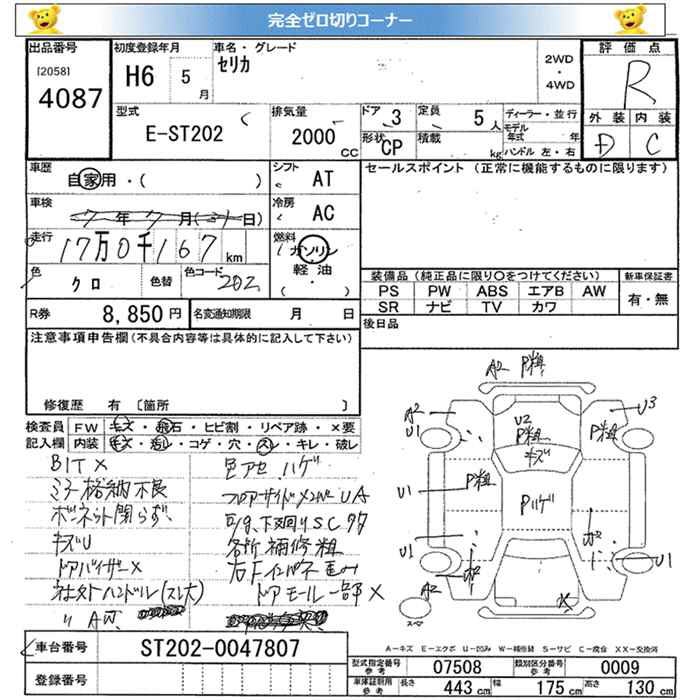 完全ゼロ切りコーナー
出品番号
[2058]
4087
初度登録年月
H6 5 月
車名・グレード
セリカ
2WD
・
4WD
評価点
R
外装 内装
D C
型式
E-ST202
排気量
2000 CC
ドア 3
形状 CP
定員 5 人
積載 kg
ディーラー・並行
モデル年式 年
ハンドル 左・右
車歴
自家用・( )
シフト AT
車検
7年7月(31日)
冷房 AC
走行
17万0千167 km
燃料
ガソリン
軽油
( ・ )
色 クロ
色替
色コード 202
R券 8,850 円
名変通知期限 月 日
セールスポイント (正常に機能するものに限ります)
装備品 (純正品に限り○をつけてください)
新車保証書
PS PW ABS エアB AW
有・無
SR ナビ TV カワ
後日品
注意事項申告欄(不具合内容等は具体的に記入して下さい)
修復歴 有 〔箇所 〕
検査員記入欄
FW キズ・飛石・ヒビ割・リペア跡・×要
内装 キズ・汚レ・コゲ・穴・スレ・キレ・破レ
BIT ×
ミラー格納不良
ボーネット閉らず
キズU
ドアバイザー×
社外ハンドル(スレ大)
〃 AW
色アセ ハゲ
各所補修粗
ドアモール一部×
A2 P粗
A2
U1
U2
P粗
キズ
P粗
U3
P粗
U1
Pハゲ
U1
A2
U1
×
スペア
A-キズ E-エクボ U-凹み W-補修跡 S-サビ C-腐食 XX-交換済
車台番号 ST202-0047807
登録番号
型式指定番号 参考 07508
類別区分番号 参考 0009
車体証明用 参考 長さ 443 cm 幅 175 cm 高さ 130 cm